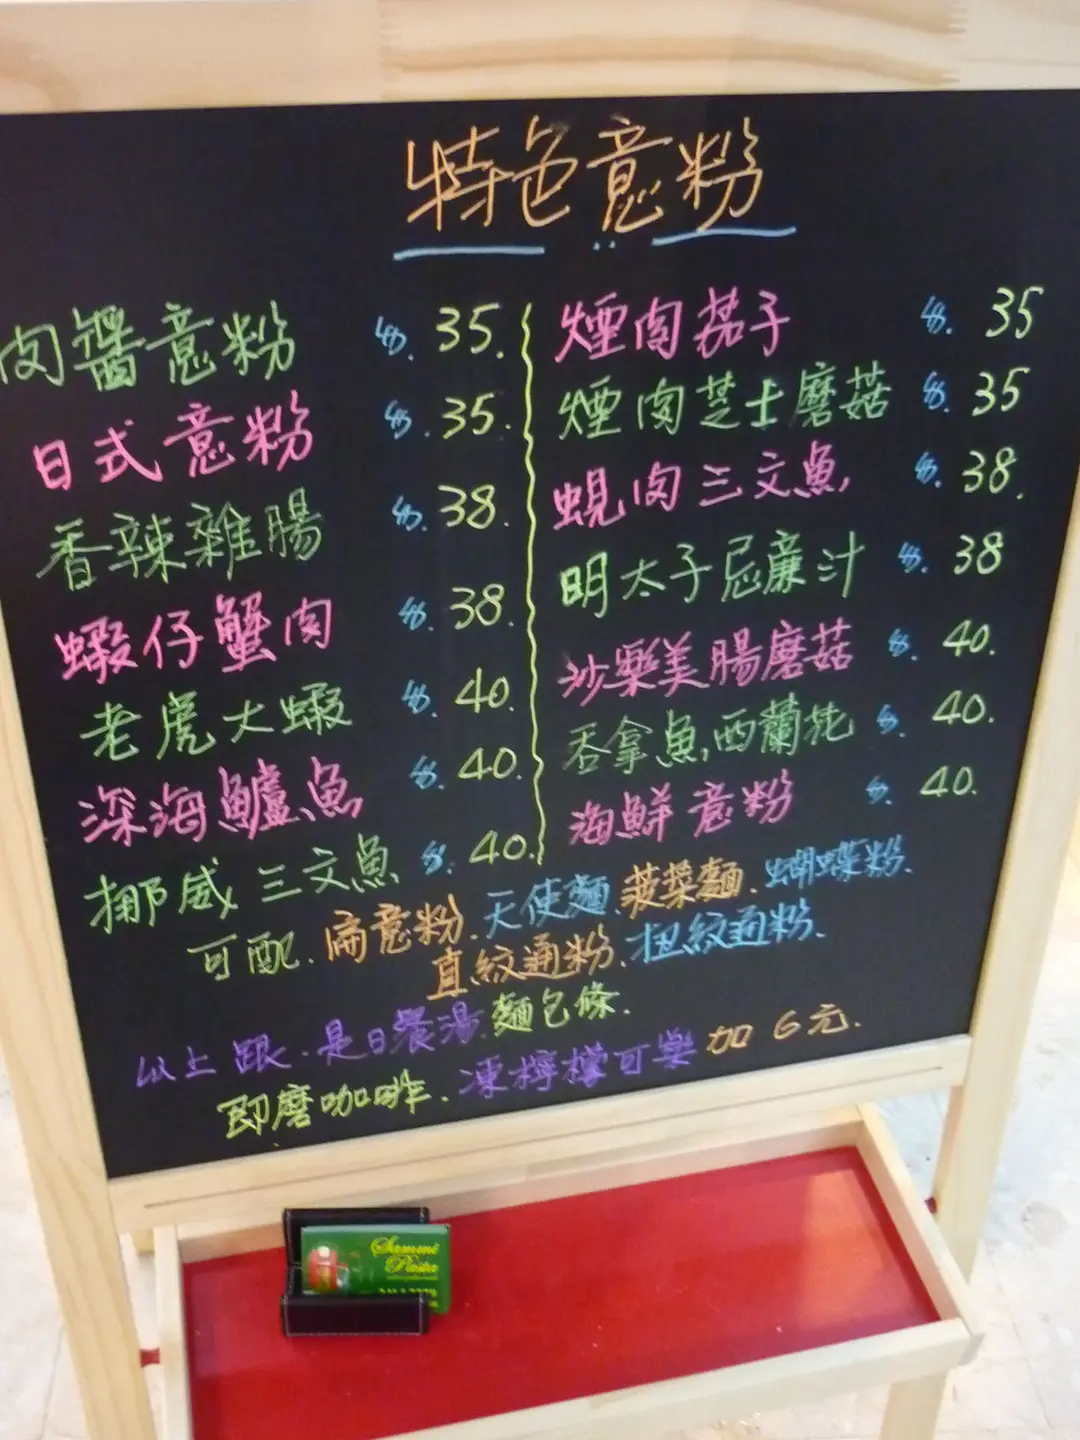 特色意粉
肉醬意粉 $. 35.
日式意粉 $. 35.
香辣雜腸 $. 38.
蝦仔蟹肉 $. 38.
老虎大蝦 $. 40.
深海鱸魚 $. 40.
挪威三文魚 $. 40.
煙肉茄子 $. 35
煙肉芝士磨菇 $. 35
蜆肉三文魚 $. 38.
明太子忌廉汁 $. 38
沙樂美腸磨菇 $. 40.
吞拿魚,西蘭花 $. 40.
海鮮意粉 $. 40.
可配.扁意粉.天使麵.菠菜麵.蝴蝶粉.
直紋通粉.扭紋通粉.
以上跟.是日餐湯.麵包條.
即磨咖啡.凍檸檬可樂加6元.
Sammi
Pasta